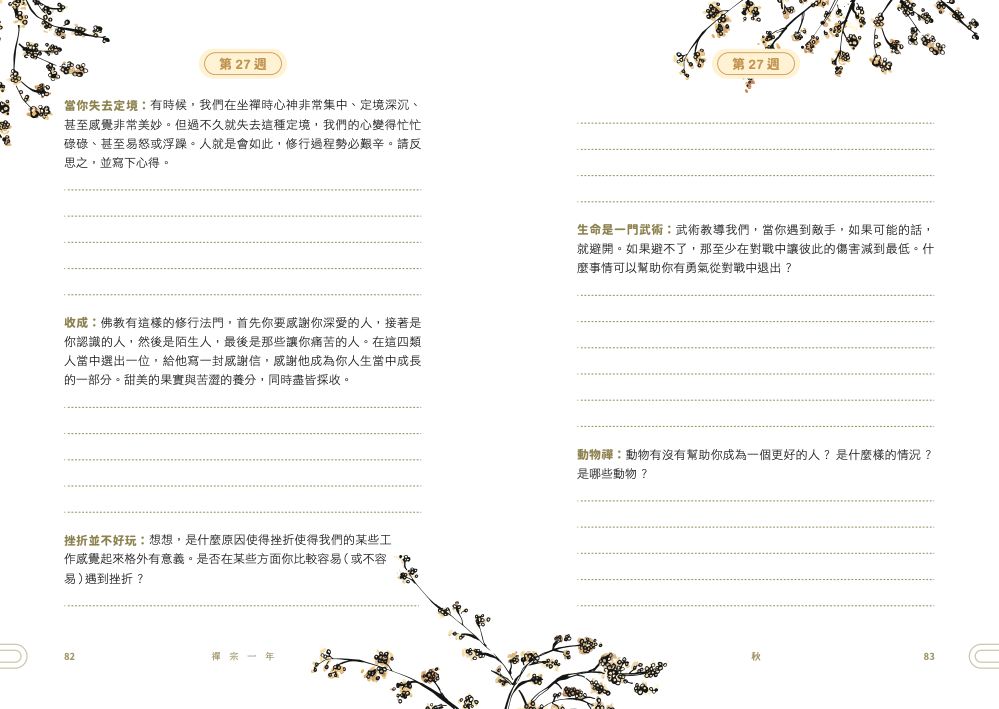 第 27 週
當你失去定境：有時候，我們在坐禪時心神非常集中、定境深沉、
甚至感覺非常美妙。但過不久就失去這種定境，我們的心變得忙忙
碌碌、甚至易怒或浮躁。人就是會如此，修行過程勢必艱辛。請反
思之，並寫下心得。
收成：佛教有這樣的修行法門，首先你要感謝你深愛的人，接著是
你認識的人，然後是陌生人，最後是那些讓你痛苦的人。在這四類
人當中選出一位，給他寫一封感謝信，感謝他成為你人生當中成長
的一部分。甜美的果實與苦澀的養分，同時盡皆採收。
挫折並不好玩：想想，是什麼原因使得挫折使得我們的某些工
作感覺起來格外有意義。是否在某些方面你比較容易（或不容
易）遇到挫折？
82
禪宗一年
第 27 週
生命是一門武術：武術教導我們，當你遇到敵手，如果可能的話，
就避開。如果避不了，那至少在對戰中讓彼此的傷害減到最低。什
麼事情可以幫助你有勇氣從對戰中退出？
動物禪：動物有沒有幫助你成為一個更好的人？是什麼樣的情況？
是哪些動物？
秋
83